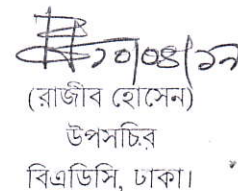 ১০/০৪/১৯
(রাজীব হোসেন)
উপসচিব
বিএডিসি, ঢাকা।